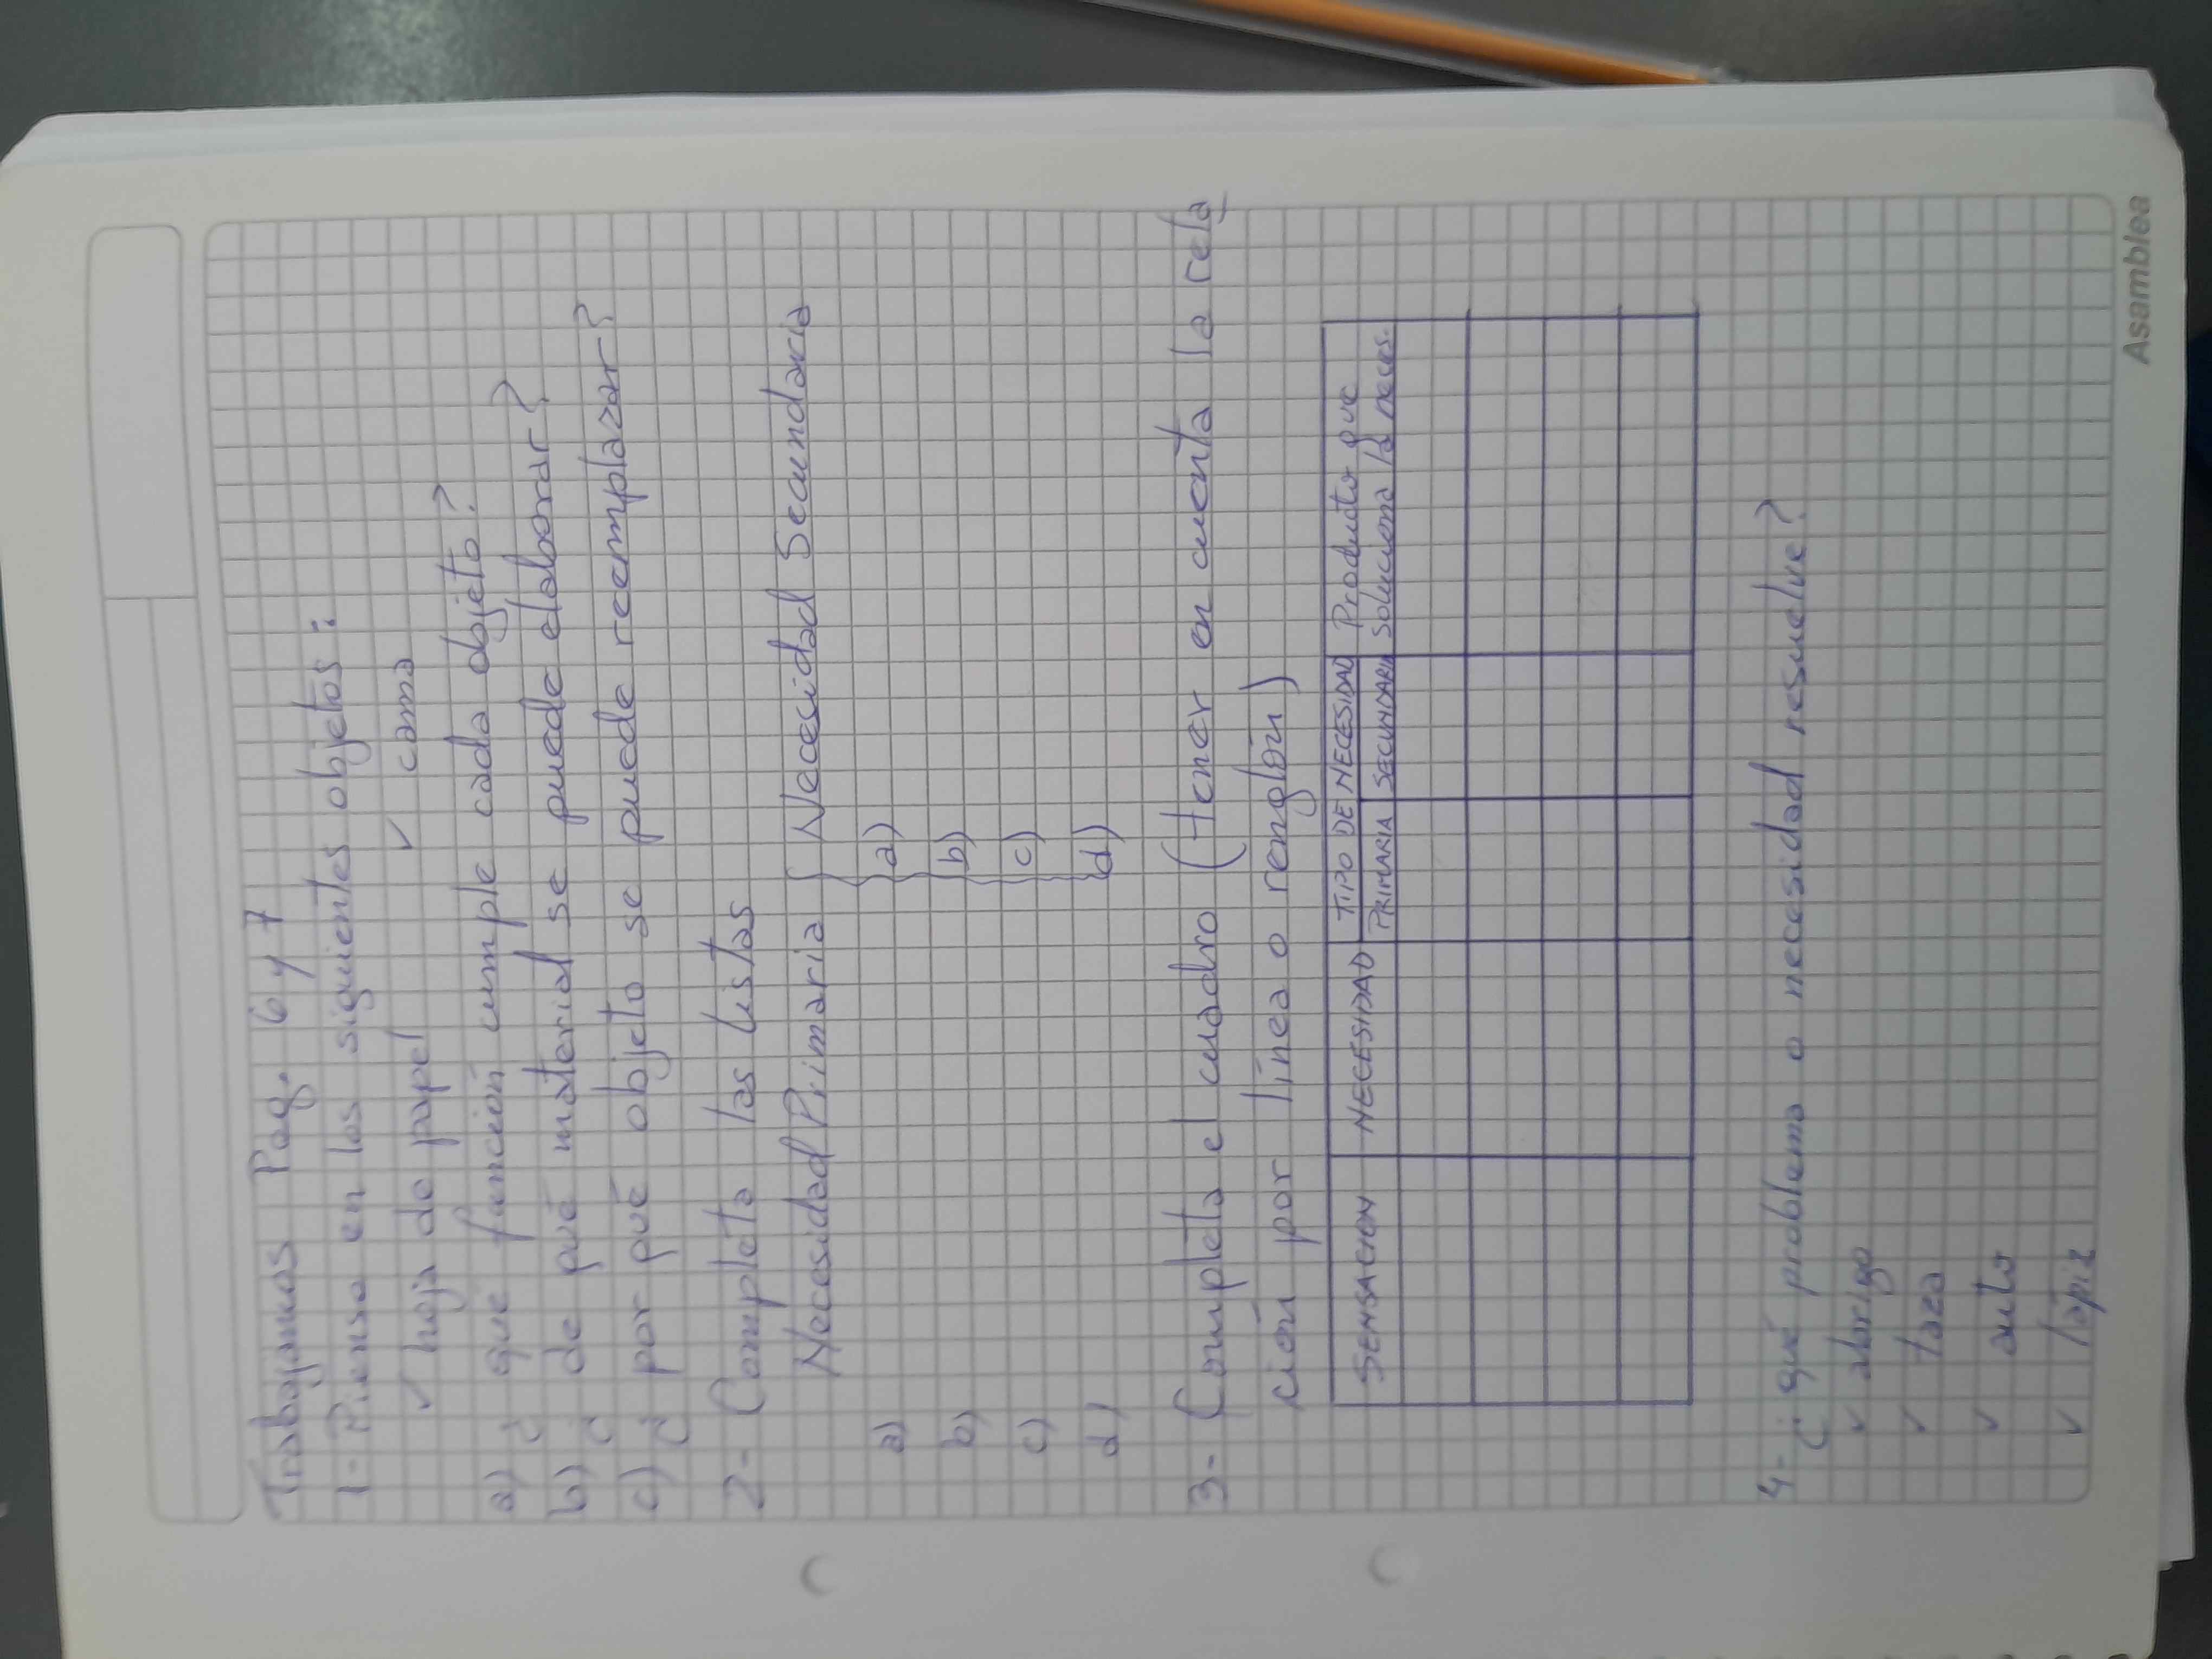 Trabajamos Pag. 6 y 7
1- Pienso en los siguientes objetos:
✓ hoja de papel ✓ cama
a) ¿ qué función cumple cada objeto?
b) ¿ de qué material se puede elaborar?
c) ¿ por qué objeto se puede reemplazar?
2- Completa las listas
Necesidad Primaria { Necesidad Secundaria
a) { a)
b) { b)
c) { c)
d) { d)
3- Completa el cuadro (tener en cuenta la rela
ción por línea o renglón)
SENSACION NECESIDAD TIPO DE NECESIDAD Producto que
PRIMARIA SECUNDARIA soluciona la neces.
4- ¿ qué problema o necesidad resuelve?
✓ abrigo
✓ taza
✓ auto
✓ lápiz
Asamblea